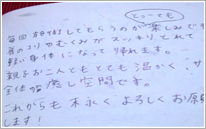 とっーても
毎回お伺いしてもらうのが楽しみです
首のコリやむくみが スッキリとれて
軽い身体になって帰れます。
親子お二人ともとても温かく、
全体が癒し空間です。
これからも末永く、よろしくお願
します!